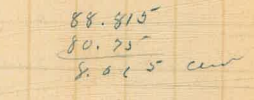 88.815
80.75
8.065 cew